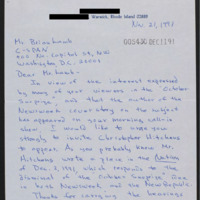 Warwick, Rhode Island 02889
Nov 21, 1991
005430 DEC 11 91
Mr. Brian Lamb
C-SPAN
400 No. Capitol St, NW
Washington D.C. 20001
Dear Mr. Lamb:
In view of the interest expressed
by many of your viewers in the "October
Surprise", and that the author of the
Newsweek cover story on the subject
has appeared in your morning call-in
show, I would like to urge you
strongly to invite Christopher Hitchens
to appear. As you probably know Mr.
Hitchens wrote a piece in the Nation
of Dec. 1, 1991, which responds to the
dismissal of the October Surprise
in both Newsweek and the New Republic.
Thanks for carrying the hearings